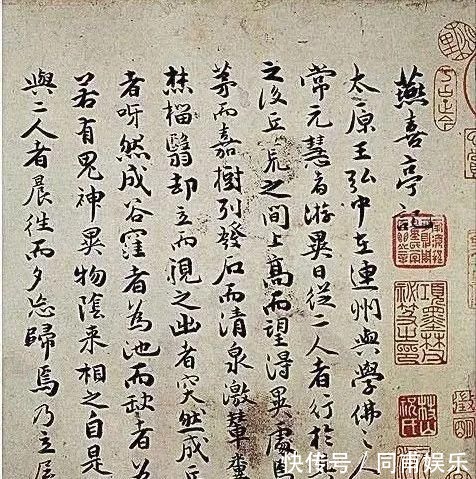 燕喜亭記
太原王弘中在連州與學佛〻人
常元慧者游異日從二人者行於其
之後丘荒之間上高而望得異處焉
茅而嘉樹列發石而清泉激輦糞
焚榴翳却立而視之出者突然成丘
者呀然成谷窪者為池而缺者為
若有鬼神異物陰來相之自是
與二人者晨往而夕忘歸焉乃立屋
項墨林祕笈之印
快传号 / 同甫娱乐